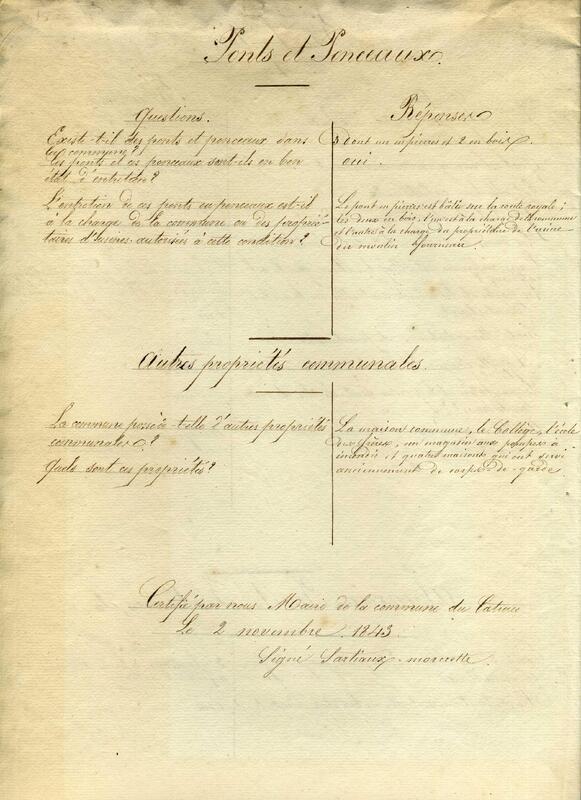 Ponts et Ponceaux.
Questions.
Existe-t-il des ponts et ponceaux dans
la commune?
Ces ponts et ces ponceaux sont-ils en bon
état d'entretien?
L'entretien de ces ponts ou ponceaux est-il
à la charge de la commune ou des proprié-
taires d'usines autorisés à cette condition?
Réponses
3 dont un en pierres et 2 en bois.
oui.
Le pont en pierres est bâti sur la route royale;
les deux en bois, l'un est à la charge de la commune
et l'autre à la charge du propriétaire de l'usine
du moulin
Autres propriétés communales.
La commune possède-t-elle d'autres propriétés
communales?
Quels sont ces propriétés?
La maison commune, le Collège, l'école
des frères, un magasin aux pompes à
incendie et quatre maisons qui ont servi
anciennement de corps-de-garde
Certifié par nous Maire de la commune du Cateau
Le 2 novembre 1843.
Signé Sartiaux-